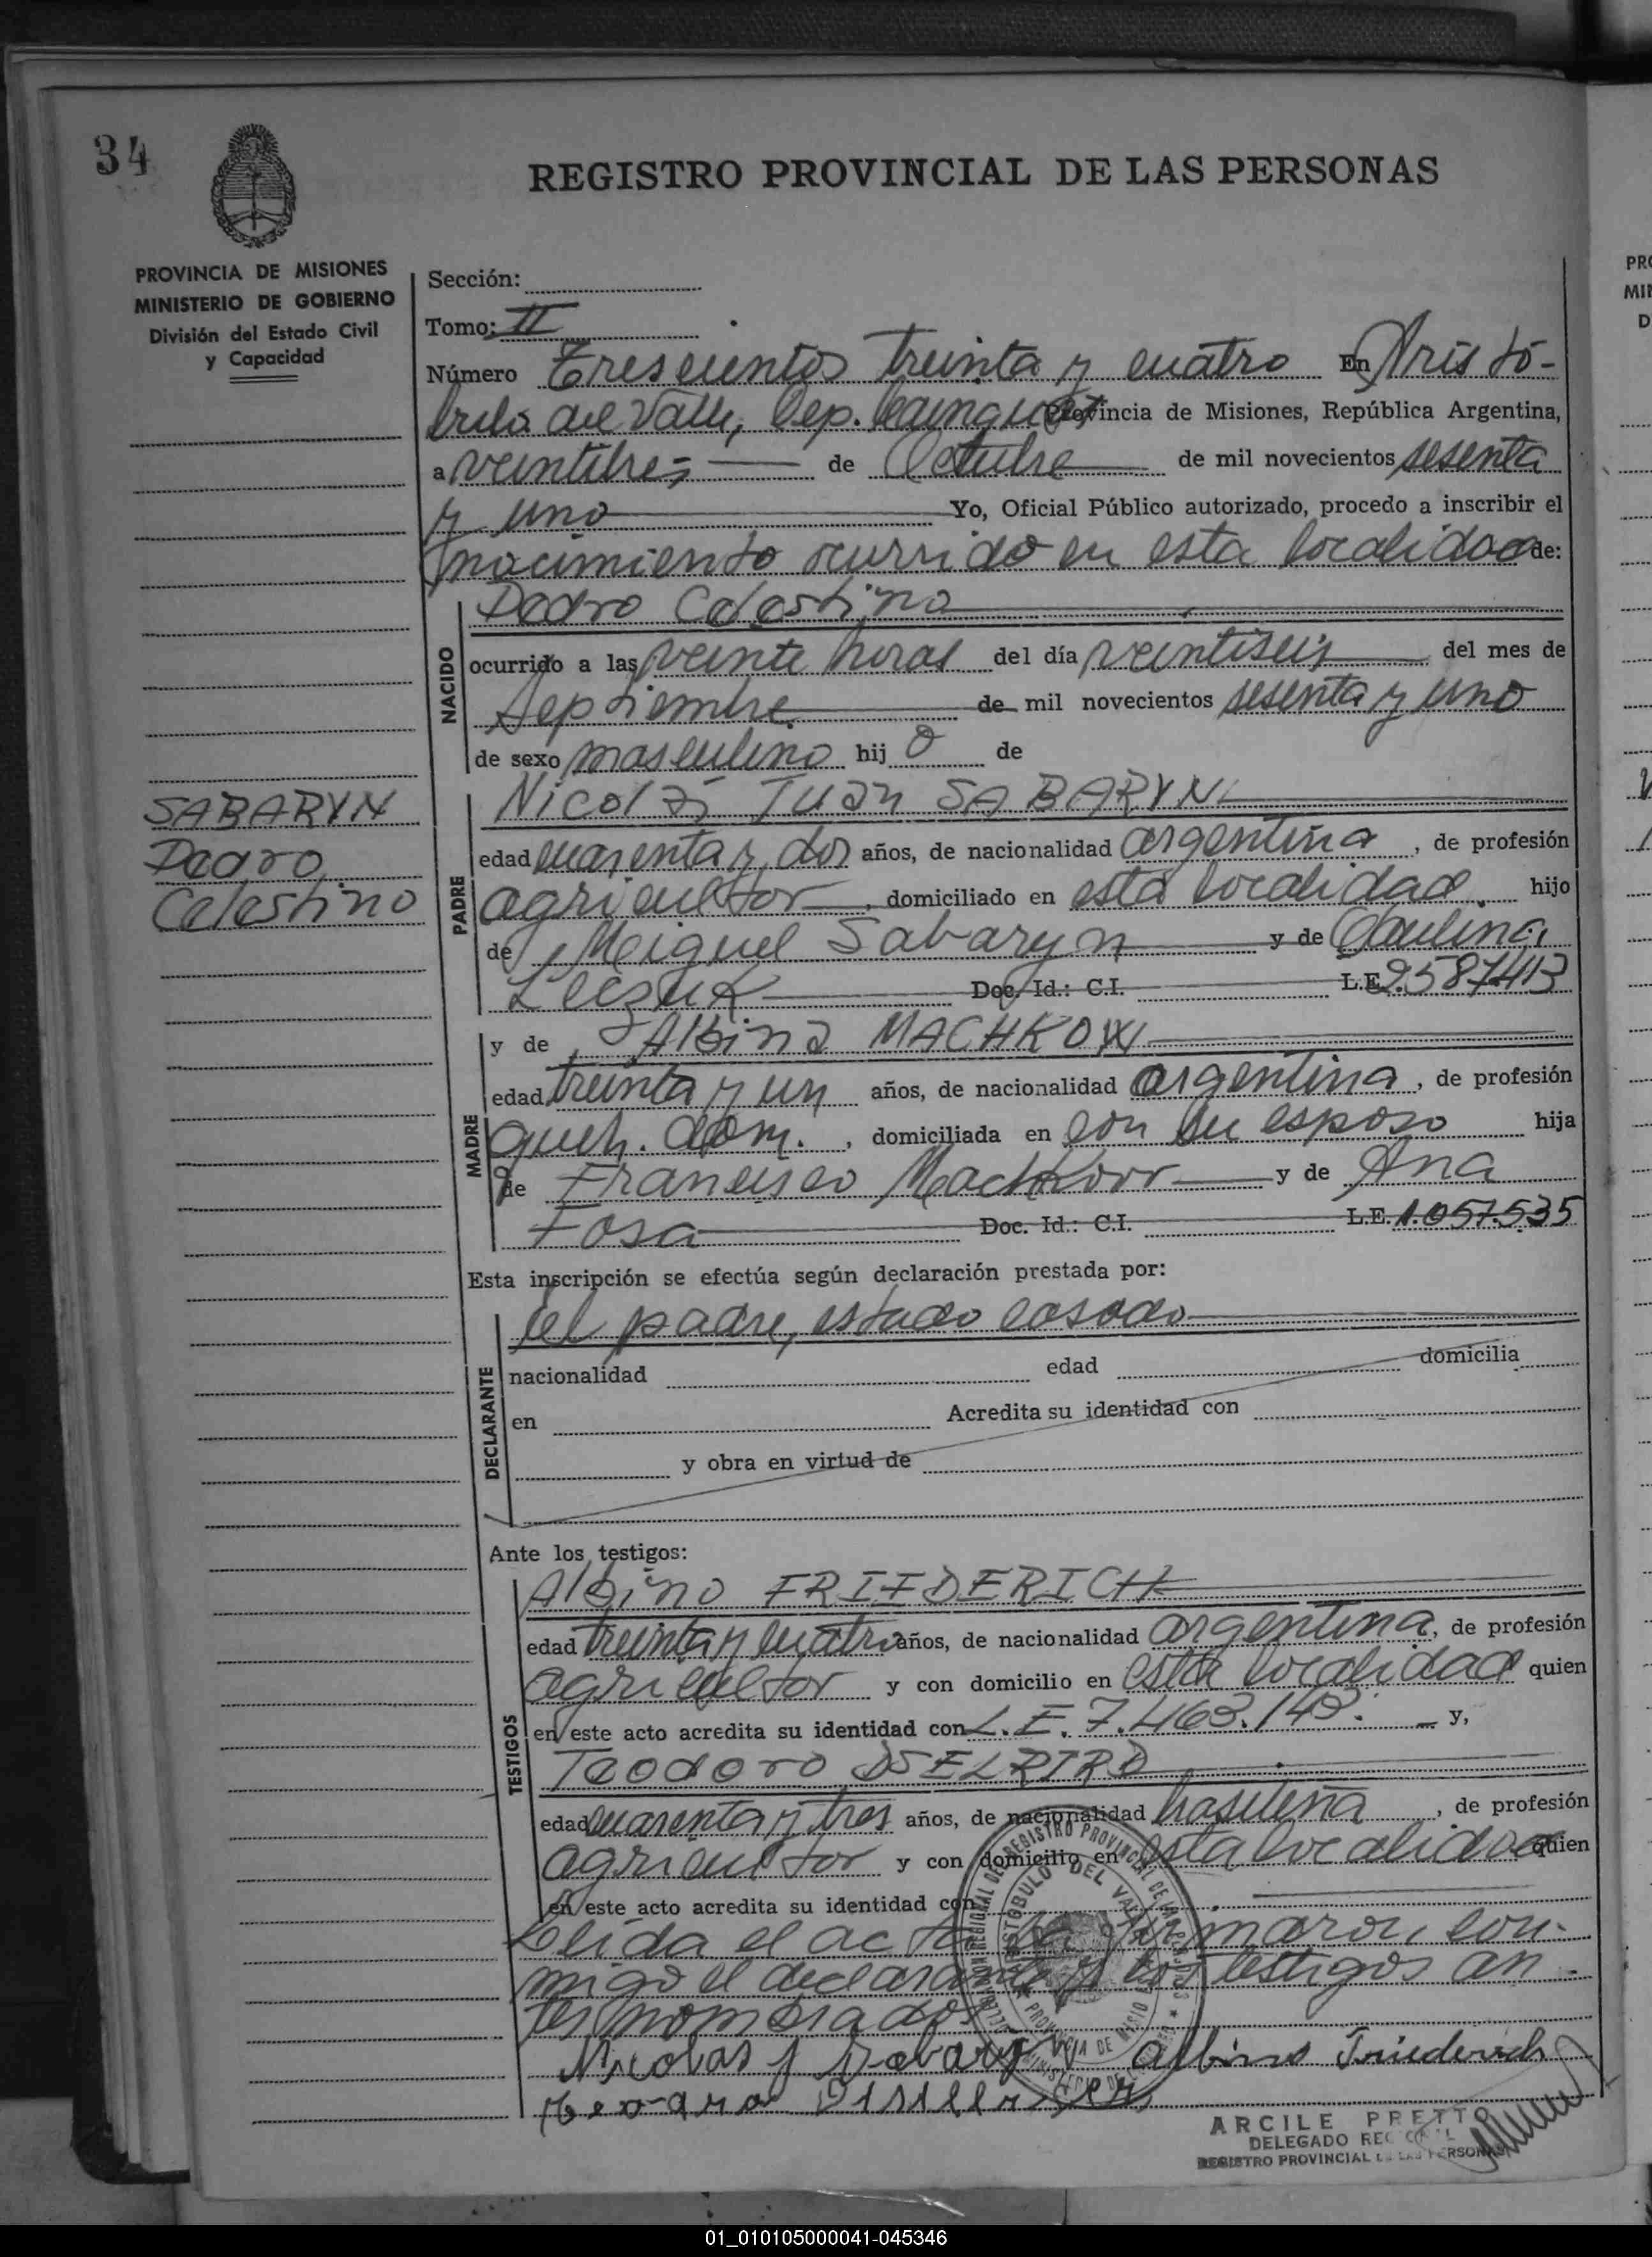 34
REGISTRO PROVINCIAL DE LAS PERSONAS
PROVINCIA DE MISIONES
MINISTERIO DE GOBIERNO
División del Estado Civil
y Capacidad
Sección:
Tomo: II
Número Trescientos treinta y cuatro En Aristó-
bulo del Valle, Dep. Cainguás Provincia de Misiones, República Argentina,
a veintitres de Octubre de mil novecientos sesenta
y uno Yo, Oficial Público autorizado, procedo a inscribir el
nacimiento ocurrido en esta localidad de:
NACIDO
Pedro Celestino
ocurrido a las veinte horas del día veintiseis del mes de
Septiembre de mil novecientos sesenta y uno
de sexo masculino hij o de
SABARYN
Pedro
Celestino
PADRE
Nicolás Juan SABARYN
edad cuarenta y dos años, de nacionalidad argentina, de profesión
agricultor, domiciliado en esta localidad hijo
de Meiguel Sabaryn y de Paulina
Leczuk Doc. Id.: C.I. L.E. 2.587.413
MADRE
y de Albina MACHKOW
edad treinta y un años, de nacionalidad argentina, de profesión
queh. dom., domiciliada en con su esposo hija
de Francisco Machkow y de Ana
Fosa Doc. Id.: C.I. L.E. 1.057.535
Esta inscripción se efectúa según declaración prestada por:
DECLARANTE
el padre, estado casado
nacionalidad edad domicilia
en Acredita su identidad con
y obra en virtud de
Ante los testigos:
TESTIGOS
Albino FRIEDERICH
edad treinta y cuatro años, de nacionalidad argentina, de profesión
agricultor y con domicilio en esta localidad quien
en este acto acredita su identidad con L.E. 7.463.143. y,
Teodoro
edad cuarenta y tres años, de nacionalidad brasileña, de profesión
agricultor y con domicilio en esta localidad quien
en este acto acredita su identidad con
Leida el acta la firmaron con-
migo el declarante y los testigos an-
tes nombrados
Nicolas J Sabaryn Albino Friederich
ARCILE PRETTO
DELEGADO REGIONAL
REGISTRO PROVINCIAL DE LAS PERSONAS
01_010105000041-045346